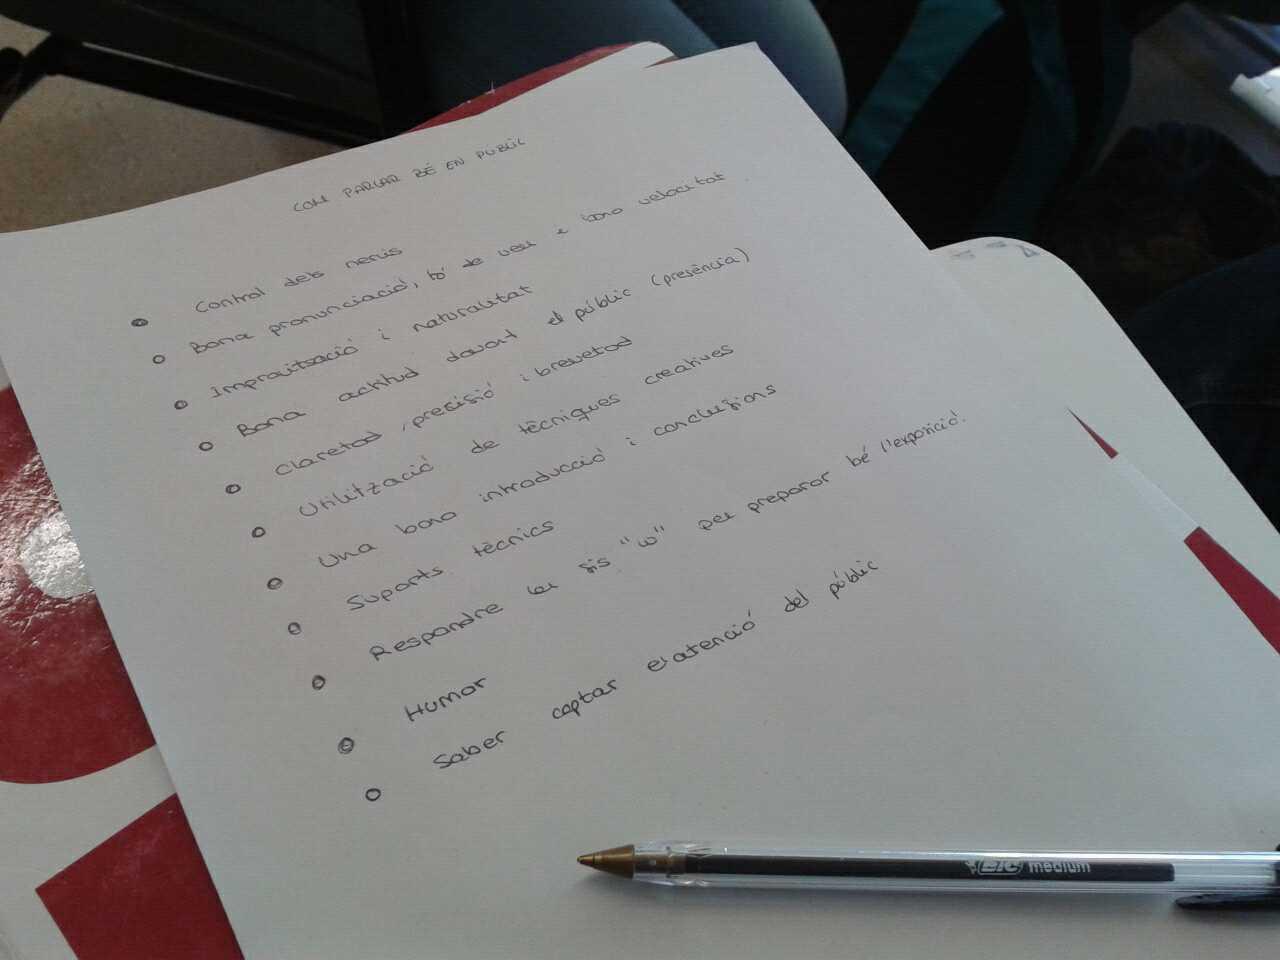 COM PARLAR BÉ EN PÚBLIC
Control dels nervis
Bona pronunciació, to de veu i bona velocitat
Improvització i naturalitat
Bona actitud davant el públic (presència)
Claretad, precisió i brevetad
Utilització de tècniques creatives
Una bona introducció i conclusions
Suports tècnics
Respondre les sis "w" per preparar bé l'exposició.
Humor
Saber captar el atenció del públic
BIC medium